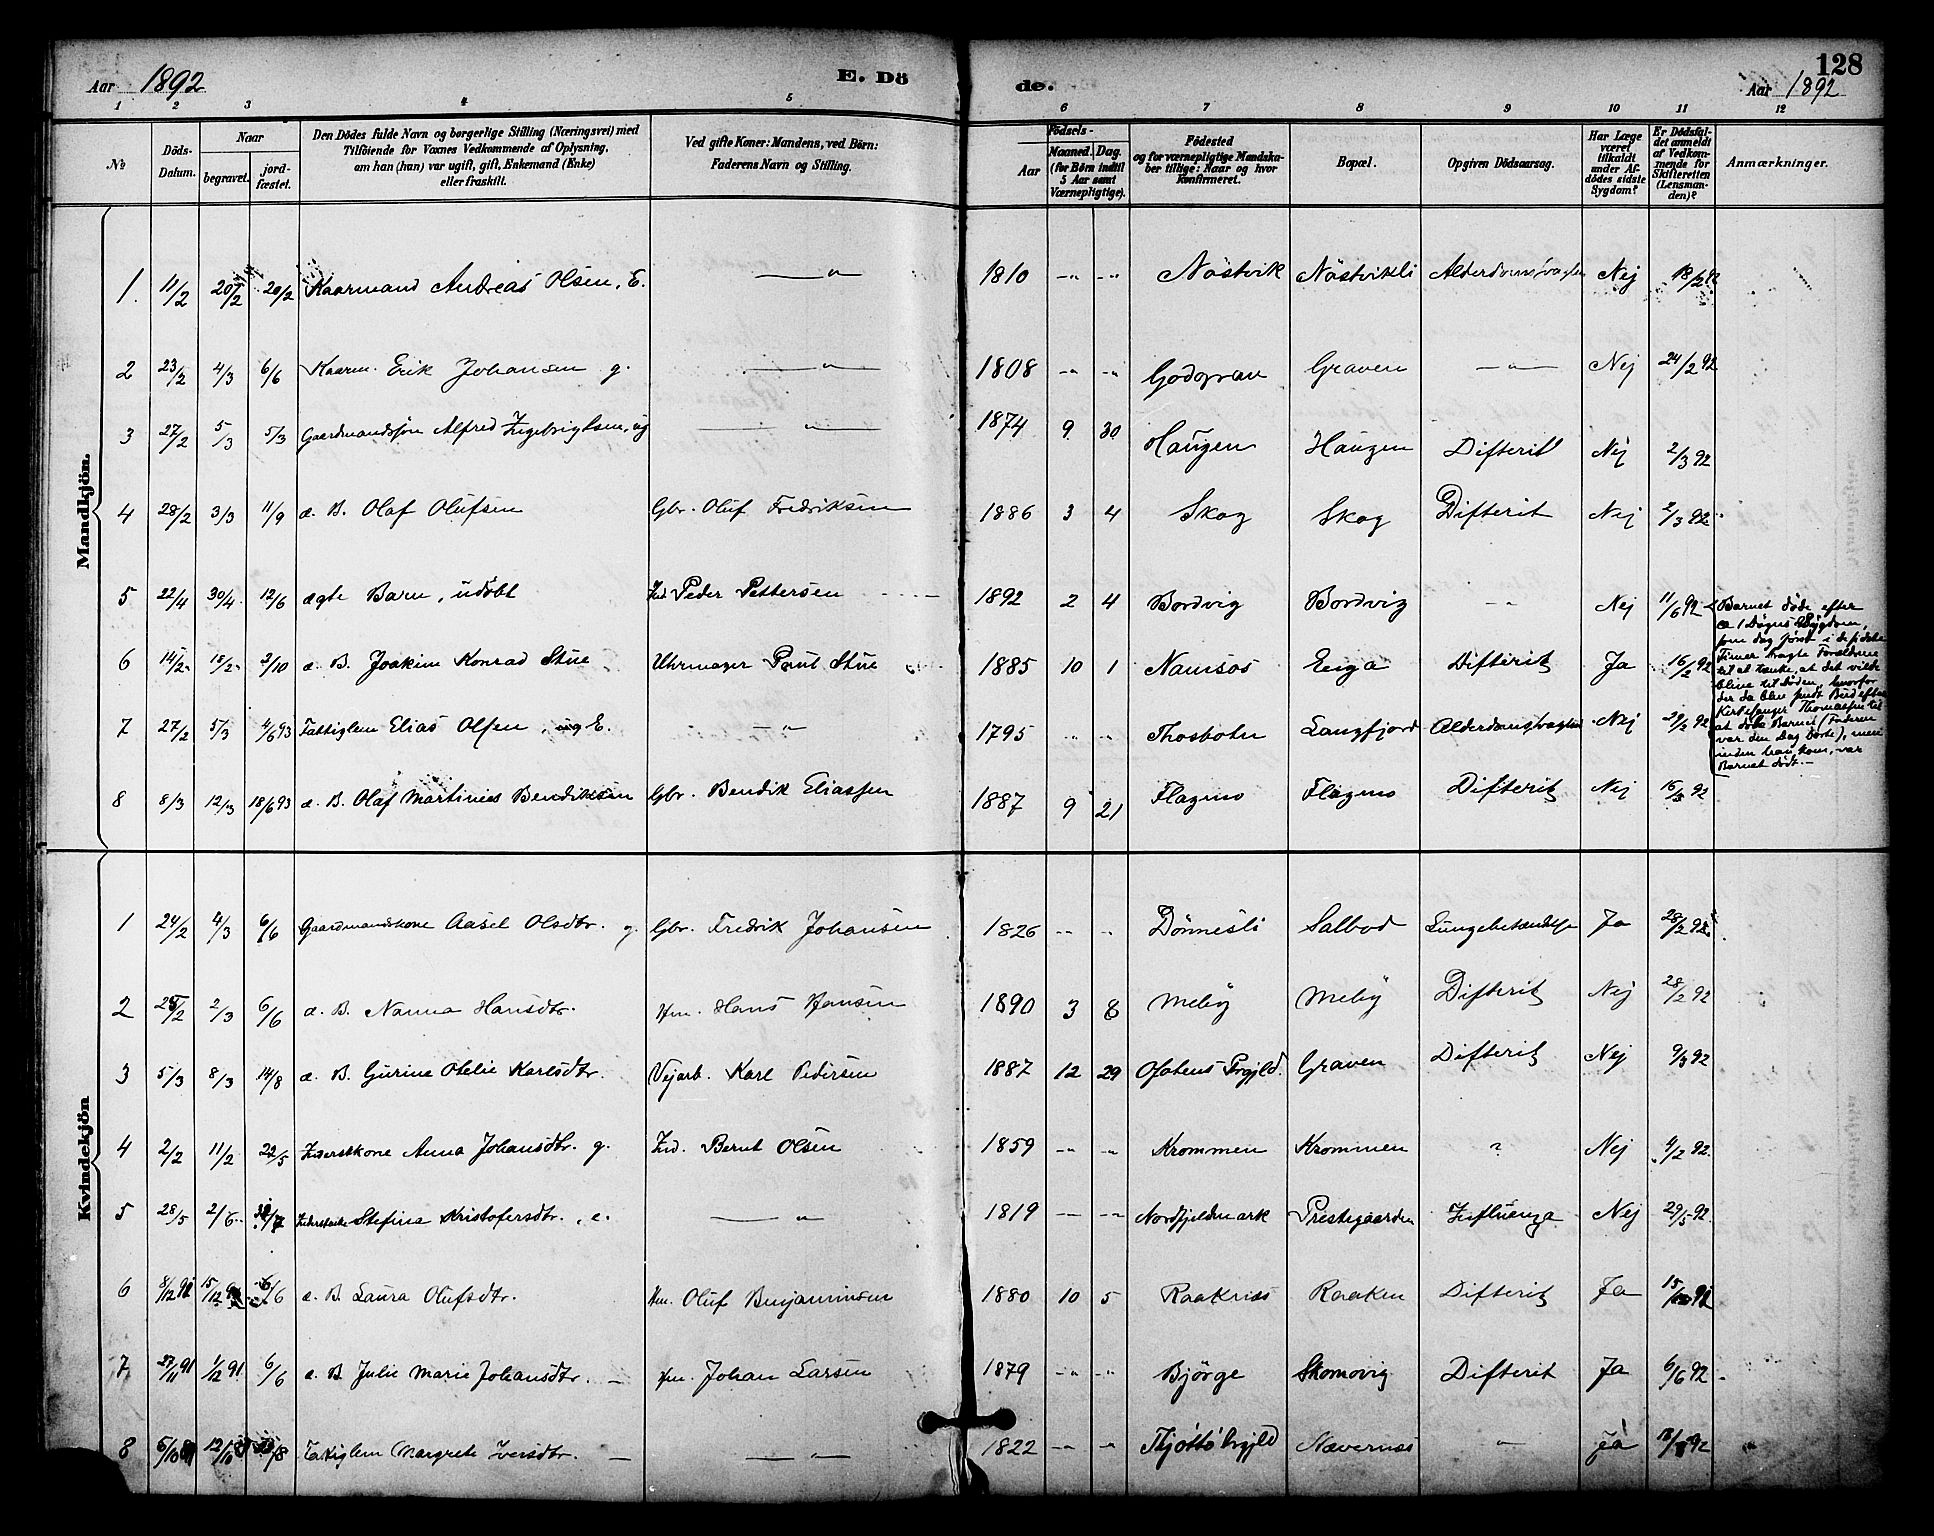 Aar 1892
E. Dö
de.
128
Aar 1892
1 2 3 4 5 6 7 8 9 10 11 12
№
Döds-Datum.
Naar
begravet.
jord-fæstet.
Den Dödes fulde Navn og borgerlige Stilling (Næringsvei) med
Tilföiende for Voxnes Vedkommende af Oplysning,
om han (hun) var ugift, gift, Enkemand (Enke)
eller fraskilt.
Ved gifte Koner: Mandens, ved Börn:
Faderens Navn og Stilling.
Födsels-
Aar
Maaned. Dag.
(for Børn indtil
5 Aar samt
Værnepligtige).
Födested
og for værnepligtige Mandska-
ber tillige: Naar og hvor
Konfirmeret.
Bopæl.
Opgiven Dödsaarsag.
Har Læge
været
tilkaldt
under Af-
dödes sidste
Sygdom?
Er Dödsfal-
det anmeldt
af Vedkom-
mende for
Skifteretten
(Lensman-
den)?
Anmærkninger.
Mandkjön.
1. 11/2 20/2 20/2 Kaarmand Andreas Olsen, E. —"— 1810 -"- -"- Nöstvik Nöstvikli Nej 18/2 92
2 23/2 4/3 6/6 Kaarm. Erik Johansen g. —"— 1808 -"- -"- Graven —"— Nej 24/2 92
3 27/2 5/3 5/3 Gaardmandssön Alfred Ingebrigtsen, ug —"— 1874 9 30 Haugen Haugen Difterit Nej 2/3 92
4 28/2 3/3 11/9 æ. B. Olaf Olufsen Gbr. Oluf Fredriksen 1886 3 4 Skog Skog Difterit Nej 2/3 92
5 22/4 30/4 12/6 ægte Barn, udöbt Ind. Peder Pettersen 1892 2 4 Bordvig Bordvig -"- Nej 11/6 92
Barnet döde efter
ca 1 Døgns Sygdom,
som dog först i de sidste
Timer bragte Forældrene
til at tænke, at det vilde
blive til Döden, hvorfor
der da blev sendt Bud efter
Kirkesanger Thomassen til
at döbe Barnet (Faderen
var den Dag borte), men
inden han kom, var
Barnet dödt.—
6 14/2 18/2 2/10 æ. B. Joakim Konrad Stue Uhrmager Paul Stue 1885 10 1 Namsos Difterit Ja 16/2 92
7 27/2 5/3 4/6 93 Fattiglem Elias Olsen, E. —"— 1795 -"- -"- Thosbotn Langfjord Nej 29/2 92
8 8/3 12/3 18/6 93 æ. B. Olaf Martinius Bendiksen Gbr. Bendik Eliassen 1887 9 21 Flagmo Flagmo Difterit Nej 16/3 92
Kvindekjön
1 24/2 4/3 6/6 Gaardmandskone Aasel Olsdtr. g. Gbr. Fredrik Johansen 1826 -"- -"- Dönnesli Salbod Lungebetændelse Ja 28/2 92
2 25/2 2/3 6/6 æ. B. Nanna Hansdtr. Hm. Hans Hansen 1890 3 8 Meby Meby Difterit Nej 28/2 92
3 5/3 8/3 14/8 æ. B. Gurine Otelie Karlsdtr. Vejarb. Karl Pedersen 1887 12 29 Ofotens Prgjld. Graven Difterit Nej 9/3 92
4 2/2 11/2 22/5 Inderstkone Anna Johansdtr. g. Ind. Bernt Olsen 1859 -"- -"- Krommen Krommen ? Nej 4/2 92
5 28/5 2/6 Stefina Kristofersdtr., e. —"— 1819 -"- -"- Nordfjeldmark Prestegaarden Influenza Nej 29/5 92
6 8/12 91 15/12 91 6/6 æ. B. Laura Olufsdtr. Hm. Oluf Benjaminsen 1880 10 5 Raaknæs Raaken Difterit Ja
7 27/11 91 1/12 91 6/6 æ. B. Julie Marie Johansdtr. — Hm. Johan Larsen 1879 -"- -"- Bjørge Skomovig Difterit Ja 6/6 92
8 Margrete Iversdtr. — —"— 1822 -"- -"- Tjøttø Prgjld Nævernes -"- Ja